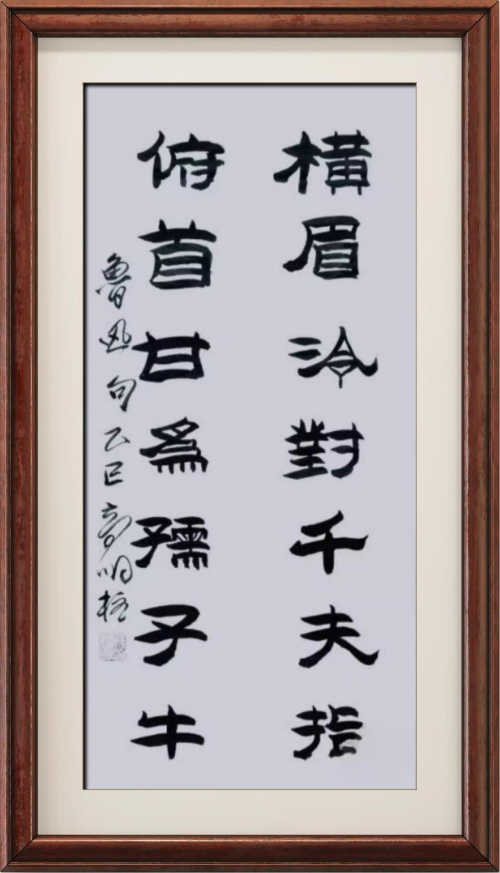 横眉冷對千夫指
俯首甘為孺子牛
魯迅句 乙巳 高明